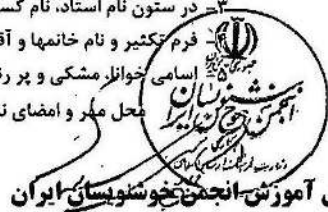 ۳- در ستون نام استاد، نام کس
فرم تکثیر و نام خانمها و آق
اسامی خوانا، مشکی و پر رن
محل مهر و امضای ن
انجمن خوشنویسان ایران
آموزش انجمن خوشنویسان ایران